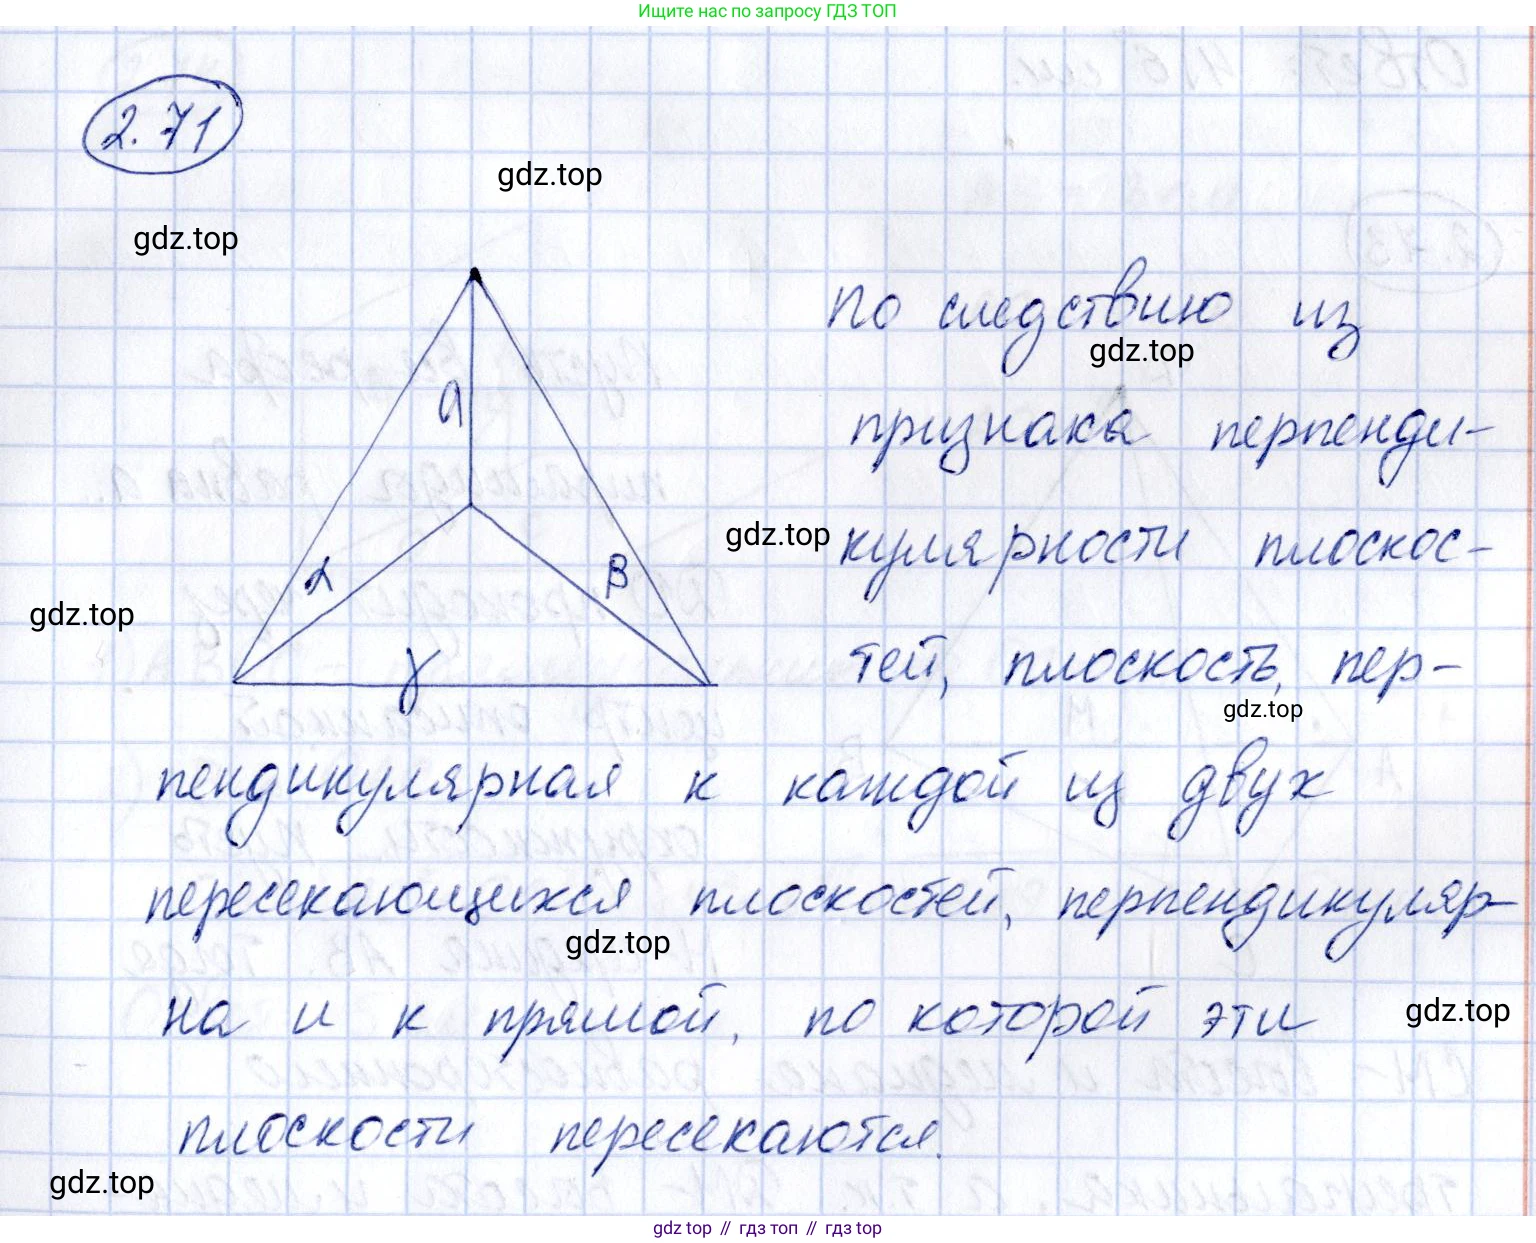 Ищите нас по запросу ГДЗ ТОП
2.71
gdz.top
gdz.top
По следствию из
gdz.top
a
признака перпенди-
gdz.top
кулярности плоскос-
α
β
gdz.top
γ
тей, плоскость, пер-
gdz.top
пендикулярная к каждой из двух
пересекающихся плоскостей, перпендикуляр-
gdz.top
на и к прямой, по которой эти
gdz.top
плоскости пересекаются.
gdz.top
gdz top // гдз топ // гдз top